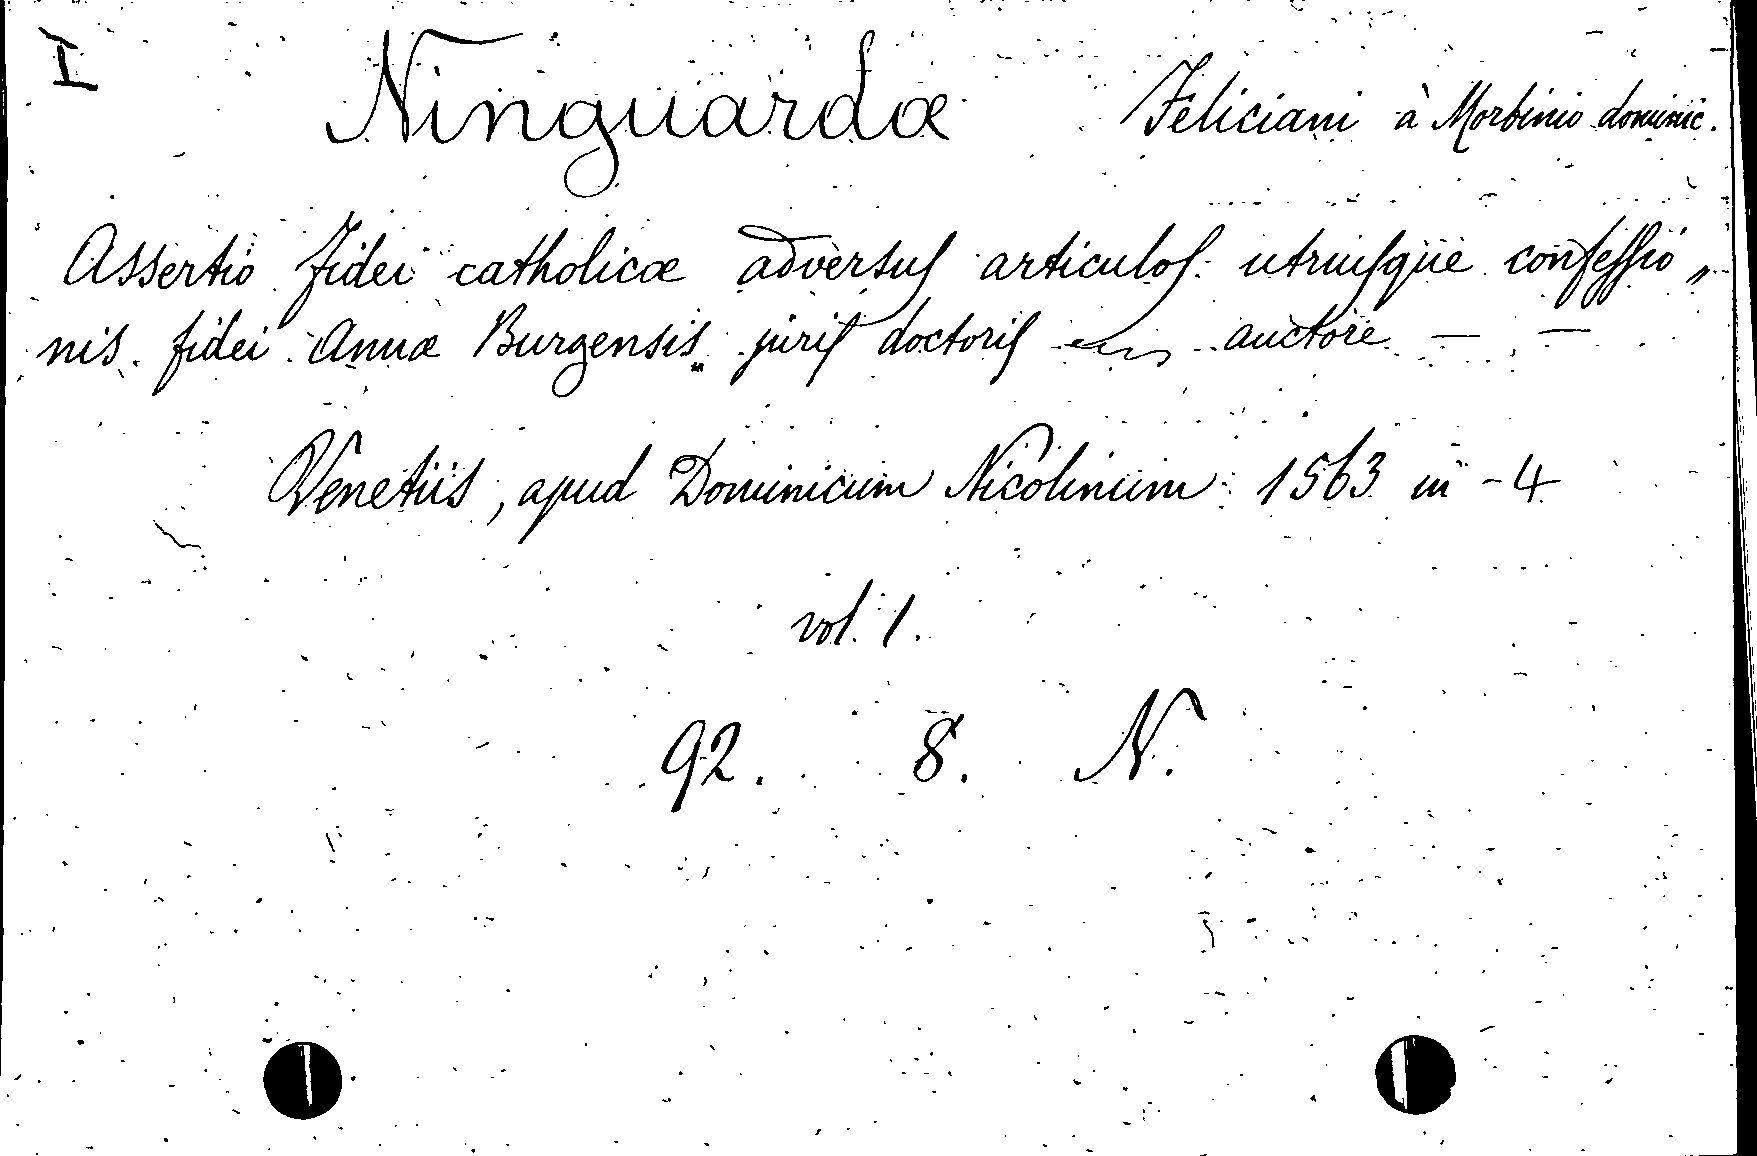 I Ninguardæ Feliciani à Morbinio dominic.
Assertio fidei catholicæ adversus articulos utriusque confessio„
nis fidei Annæ Burgensis juris doctoris auctore — —
Venetiis, apud Dominicum Nicolinum 1563 in-4
vol. 1.
92. 8. N.